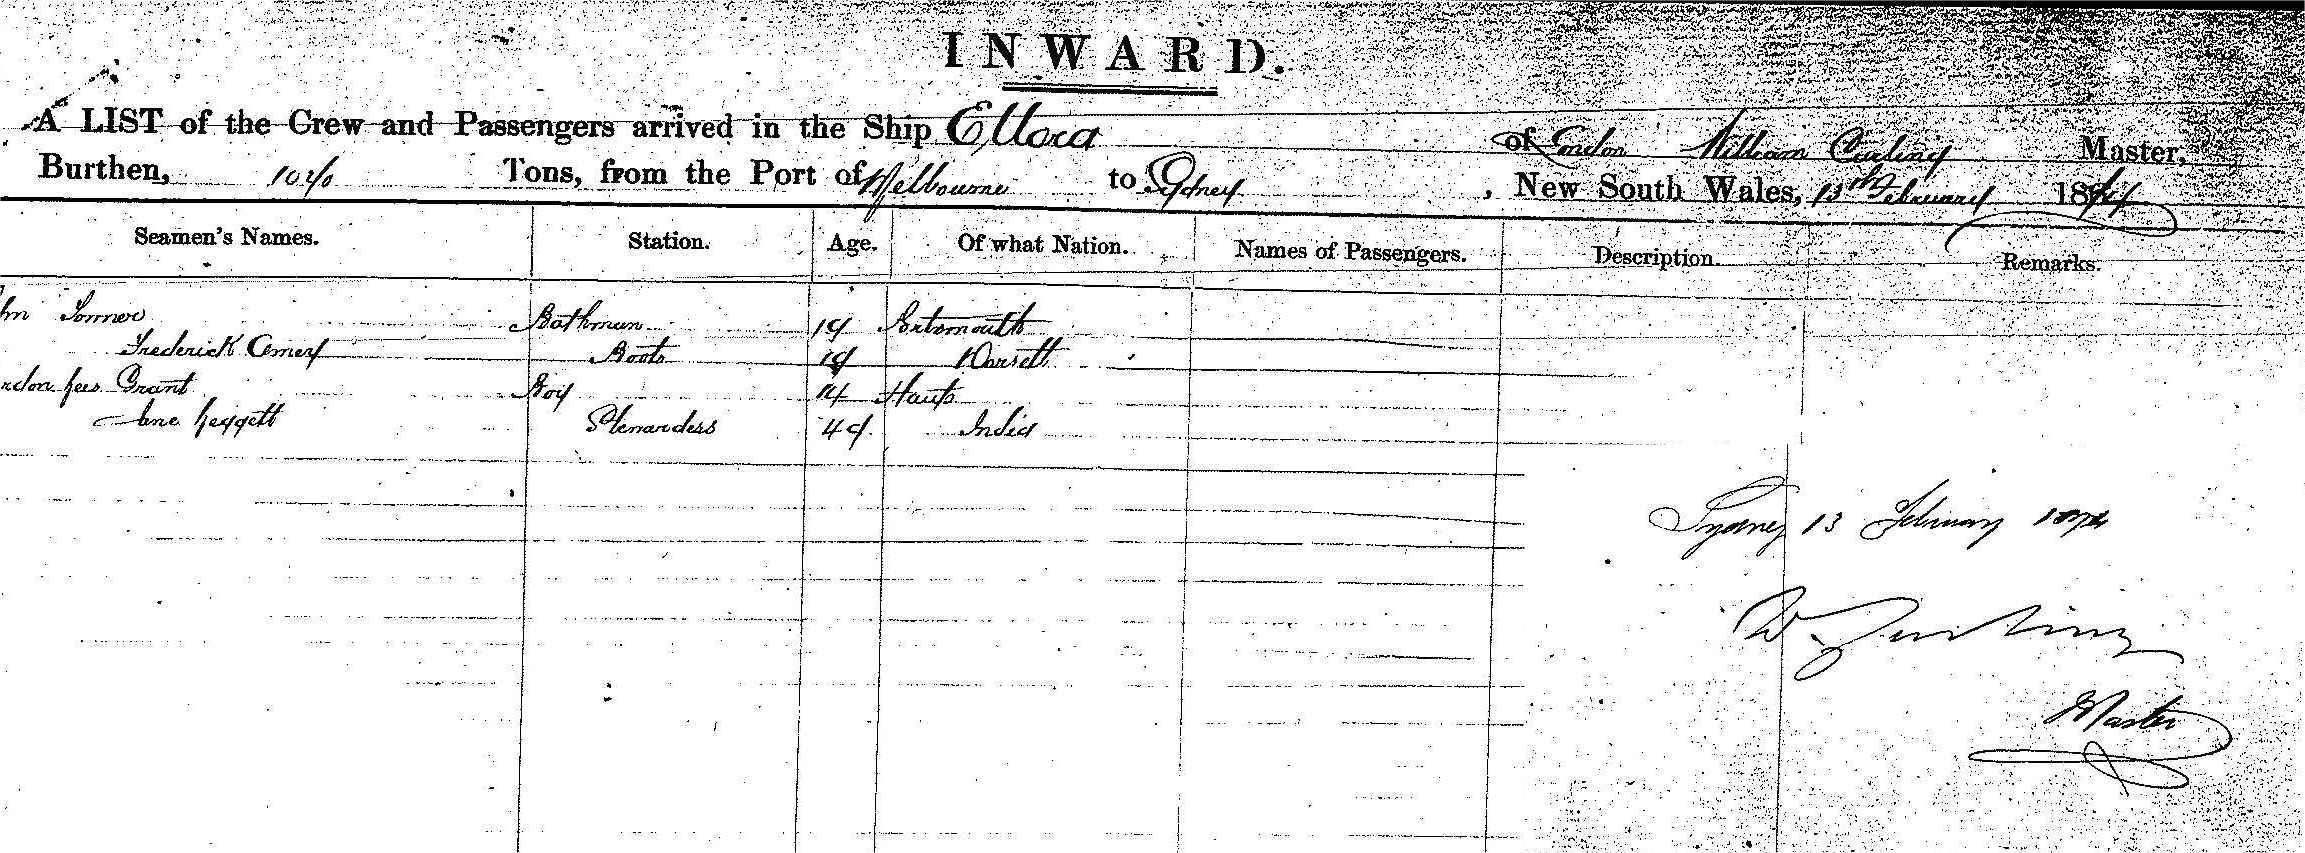 INWARD.
A LIST of the Crew and Passengers arrived in the Ship Ellora of London William Curling Master,
Burthen, Tons, from the Port of Melbourne to Sydney, New South Wales, 13th February 1874
Seamen's Names. Station. Age. Of what Nation. Names of Passengers. Description. Remarks.
hn 19 Portsmouth
Frederick Amey Boots 19 Dorsett
rdon Lees Grant Boy 14 Hants
Jane Leggett Stewardess 49 India
Sydney 13 February 1874
W. Curling
Master